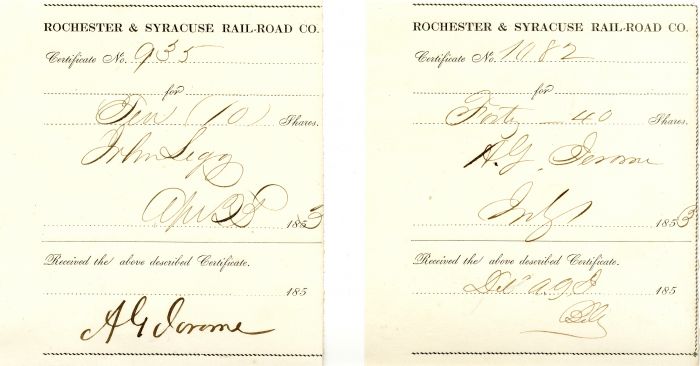 ROCHESTER & SYRACUSE RAIL-ROAD CO.
Certificate No. 935
for
Ten (10) Shares.
John Legg
April 1853
Received the above described Certificate.
185
A G Jerome
ROCHESTER & SYRACUSE RAIL-ROAD CO.
Certificate No. 1082
for
Forty — 40 Shares.
A. G. Jerome
July 1 1853
Received the above described Certificate.
185